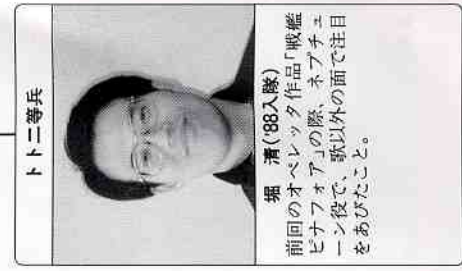 トト二等兵
堀　清('88入隊)
前回のオペレッタ作品「戦艦
ピナフォア」の際、ネプチュ
ーン役で、歌以外の面で注目
をあびたこと。